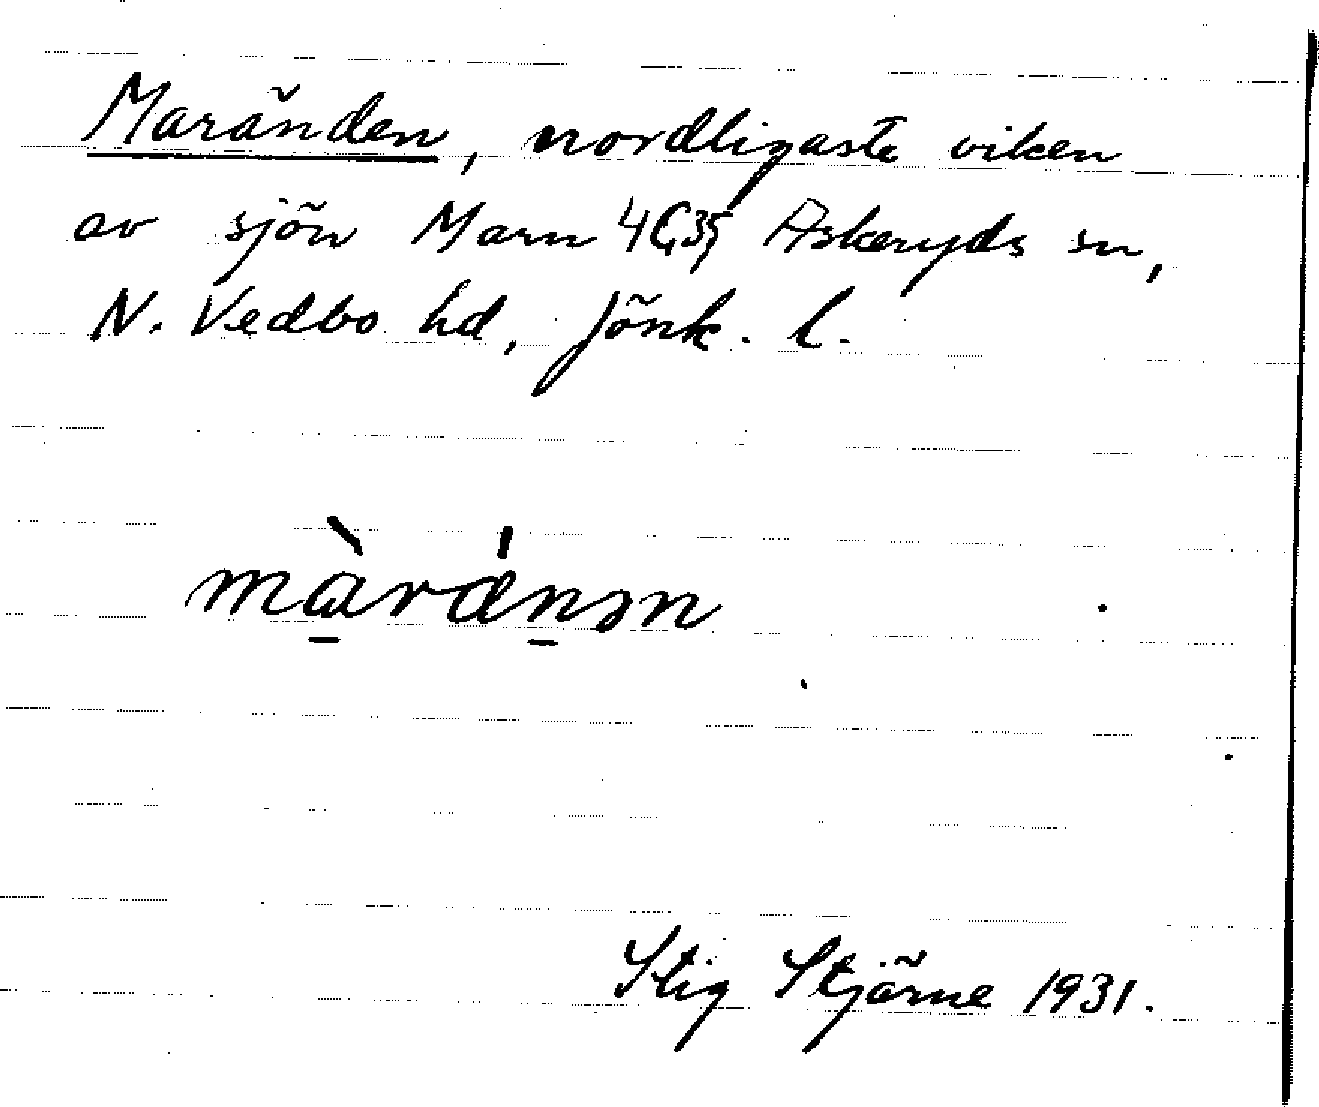 Maränden, nordligaste viken
av sjön Marn 4G35 Askeryds sn,
N. Vedbo hd, Jönk. l.
màránən
Stig Stjärne 1931.